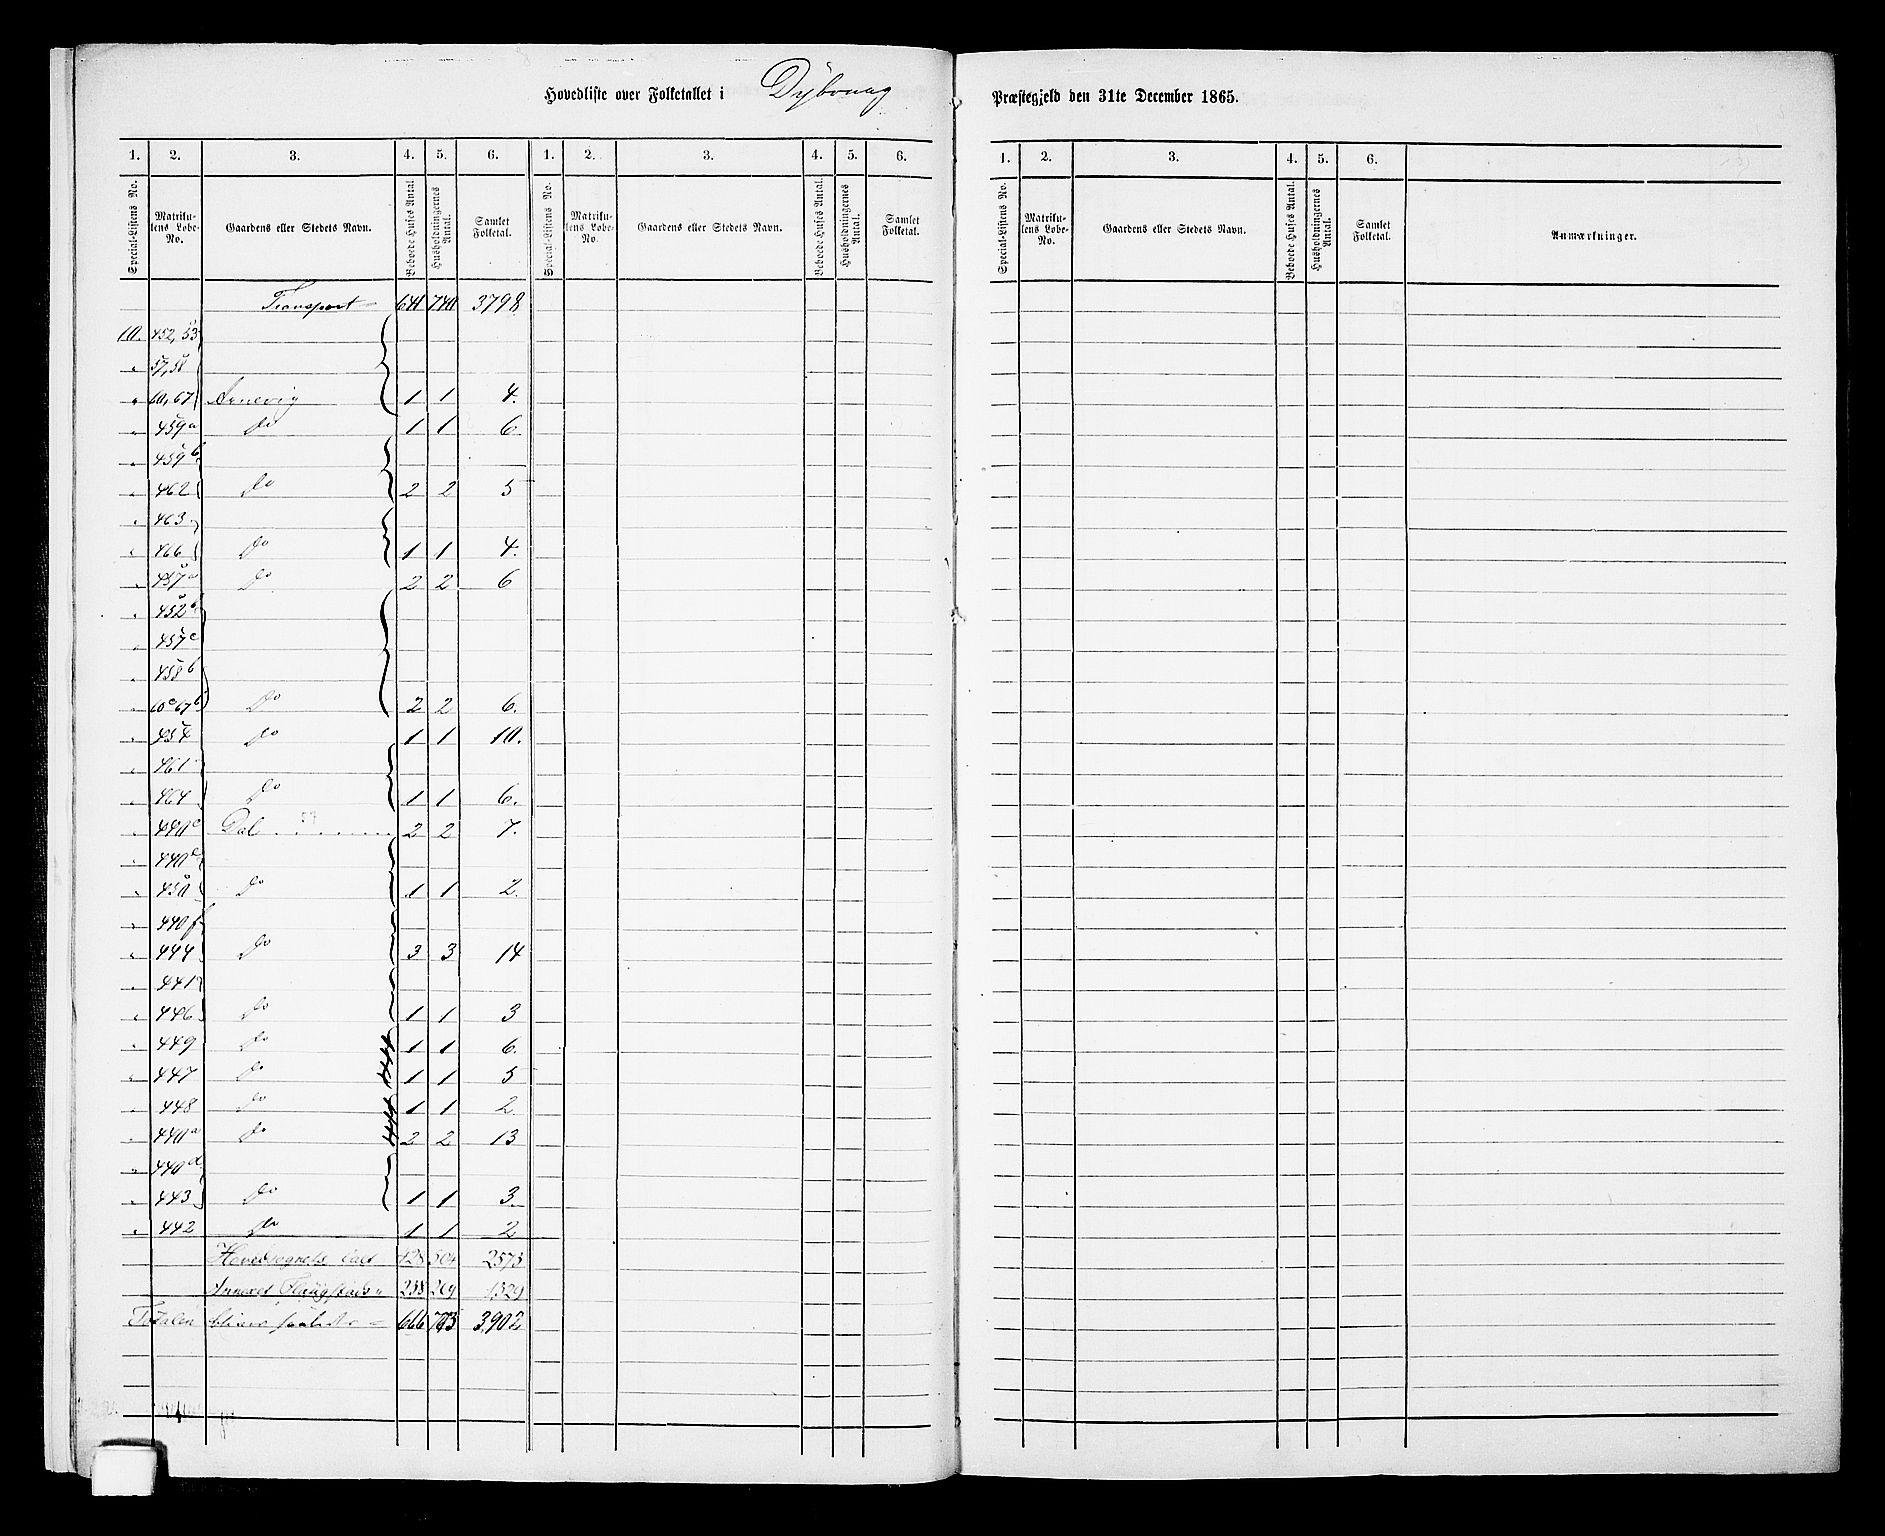 Hovedliste over Folketallet i Dybvaag Præstegjeld den 31te December 1865.
1. 2. 3. 4. 5. 6. 1. 2. 3. 4. 5. 6. 1. 2. 3. 4. 5. 6.
Special-Listens No. Matrikulens Løbe-No. Gaardens eller Stedets Navn. Beboede Huses Antal Husholdningernes Antal. Samlet Folketal. Special-Listens No. Matrikulens Løbe-No. Gaardens eller Stedets Navn. Beboede Huses Antal. Husholdningernes Antal. Samlet Folketal. Special-Listens No. Matrikulens Løbe-No. Gaardens eller Stedets Navn. Beboede Huses Antal. Husholdningernes Antal. Samlet Folketal. Anmærkninger.
Transport 641 740 3798
10. 452, 53
" 57, 58
" 60, 67 Arnevig 1 1 4.
" 459a Do 1 1 6
" 459b
" 462 Do 2 2 5
" 463
" 466 Do 1 1 4.
" 457a Do 2 2 6
" 452
" 457c
" 458b
" 60c 67b Do 2 2 6.
" 454 Do 1 1 10.
" 461
" 464 Do 1 1 6.
" 440c Dal 2 2 7.
" 440e
" 450 Do 1 1 2.
" 440f
" 444 Do 3 3 14
" 441
" 446 Do 1 1 3
" 449 Do 1 1 6.
" 447 Do 1 1 5
" 448 Do 1 1 2
" 440a Do 2 2 13
" 440d
" 443 Do 1 1 3.
" 442 Do 1 1 2
Hovedsognets ialt 428 504 2573
Annexet Flaugstads 238 269 1329
Totalen bliver 666 773 3902